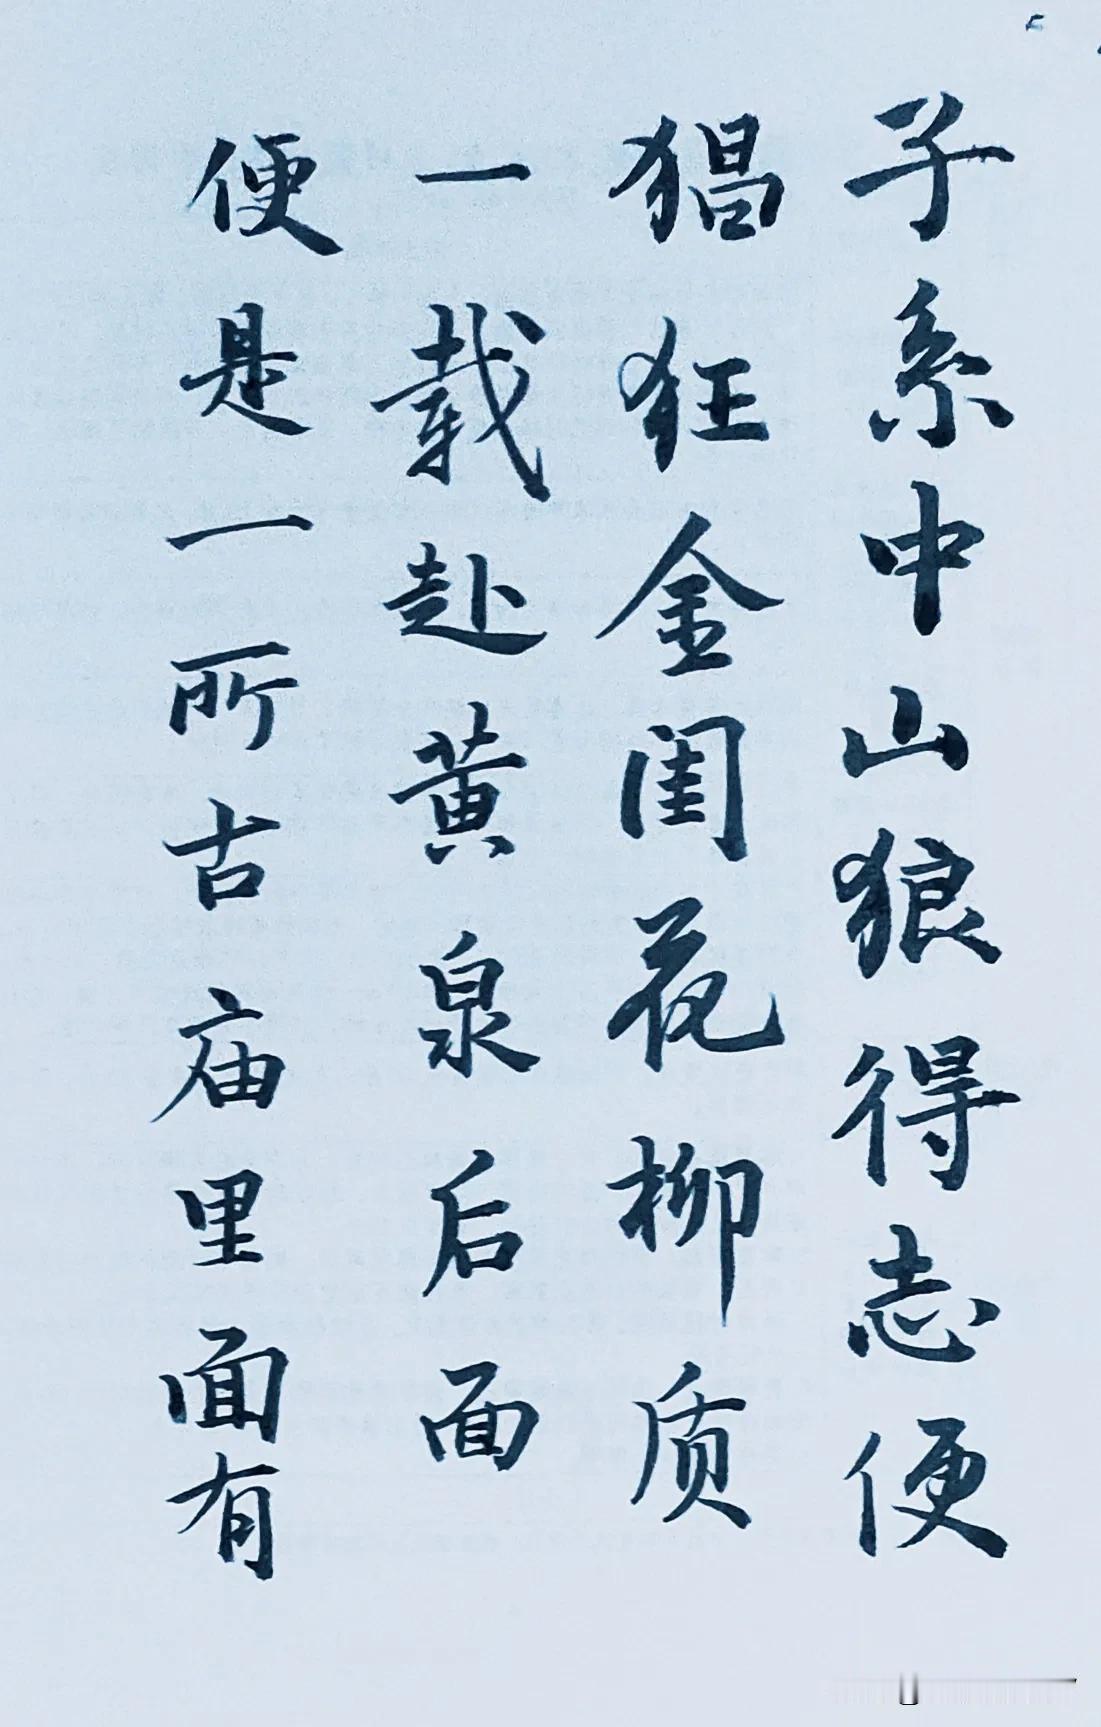 子系中山狼得志便
猖狂金闺花柳质
一载赴黄泉后面
便是一所古庙里面有